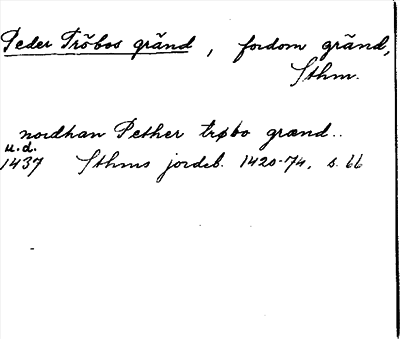 Peder Tröbos gränd, fordom gränd,
Sthm.
nordhan Pether trøbo grænd..
u.d.
1437 Sthms jordeb. 1420-74, s. 66